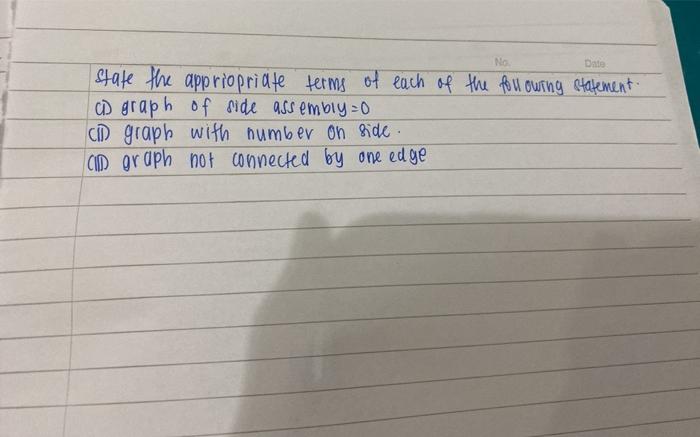 No. Date
State the appriopriate terms of each of the following statement.
(I) graph of side assembly=0
(II) graph with number on side.
(III) graph not connected by one edge